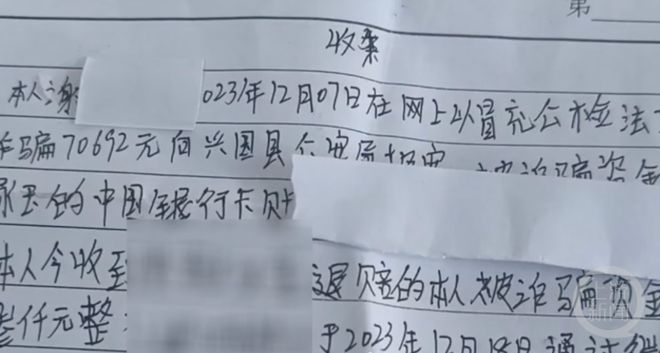 第
收条
本人谢 023年12月07日在网上以冒充公检法
诈骗70692元向兴国县公安局报案 被诈骗资金
的中国银行卡
本人今收到 退赔的本人被诈骗资金
叁仟元整 于2023年12月18日通过